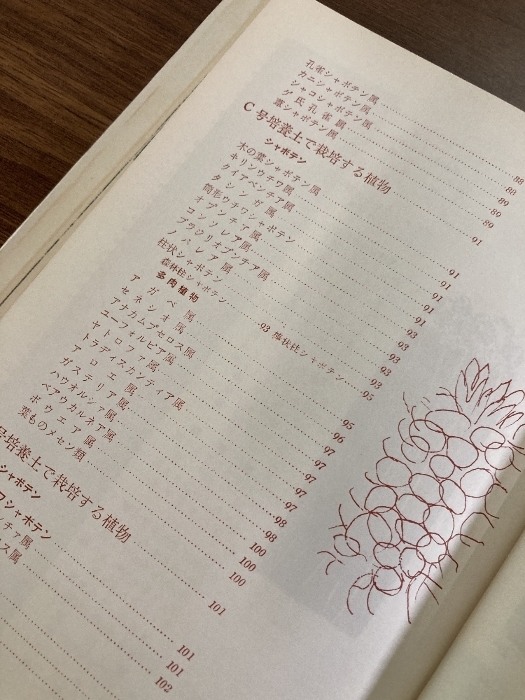 孔雀シャボテン属 88
カニシャボテン属 88
シャコシャボテン属 89
ゲ氏孔雀属 89
葦シャボテン属 89
C号培養土で栽培する植物 91
シャボテン
木の葉シャボテン属 91
キリンウチワ属 91
クイアベンチア属 91
タシンガ属 91
筒形ウチワシャボテン 91
オプンチア属 93
コンソレア属 93
ブラジリオプンチア属 93
ノパレア属 93
柱状シャボテン 93
森林柱シャボテン 93 柱シャボテン 95
多肉植物
アガベ属 95
セネシオ属 96
アナカムプセロス属 97
ユーフォルビア属 97
ヤトロファ属 97
トラディスカンティア属 97
アロエ属 97
ガステリア属 98
ハウオルシァ属 98
ベアウカルネア属 100
ボウエア属 100
葉ものメセン類 100
号培養土で栽培する植物 101
シャボテン
ワシャボテン 101
ンチア属 101
ス属 102